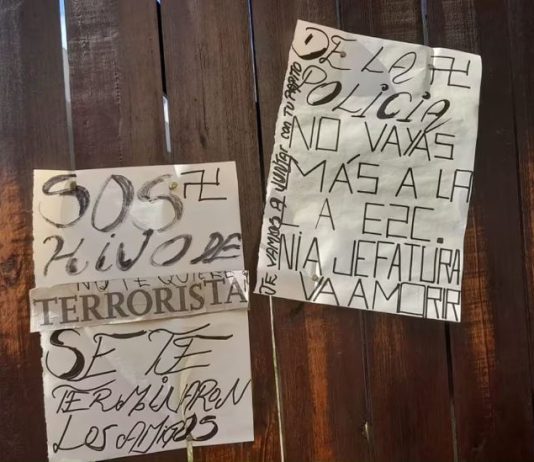 SOS 卍
HIJO DE
NO TE QUIERE
TERRORISTA
SE TE
TERMINARON
LOS AMIGOS
DE LA 卍
POLICIA
NO VAYAS
MÁS A LA
NI A JEFATURA
VA A MORIR
TE VAMOS A JUNTAR CON TU PAPITO